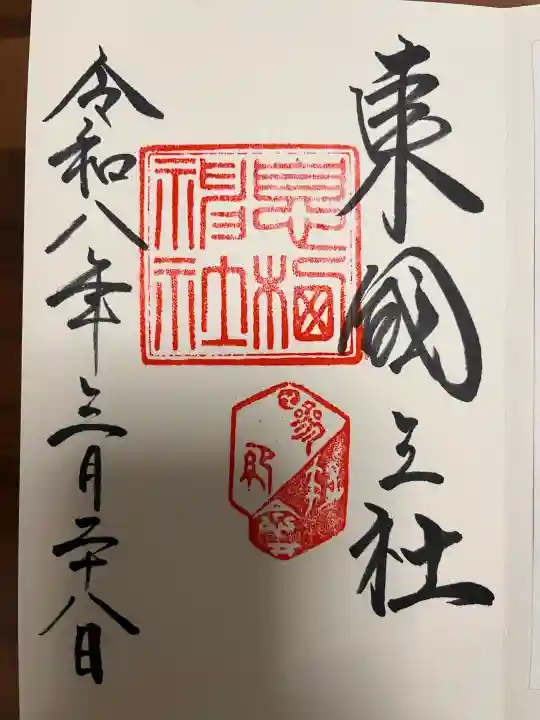 東國三社
息栖
神社
令和八年三月二十八日